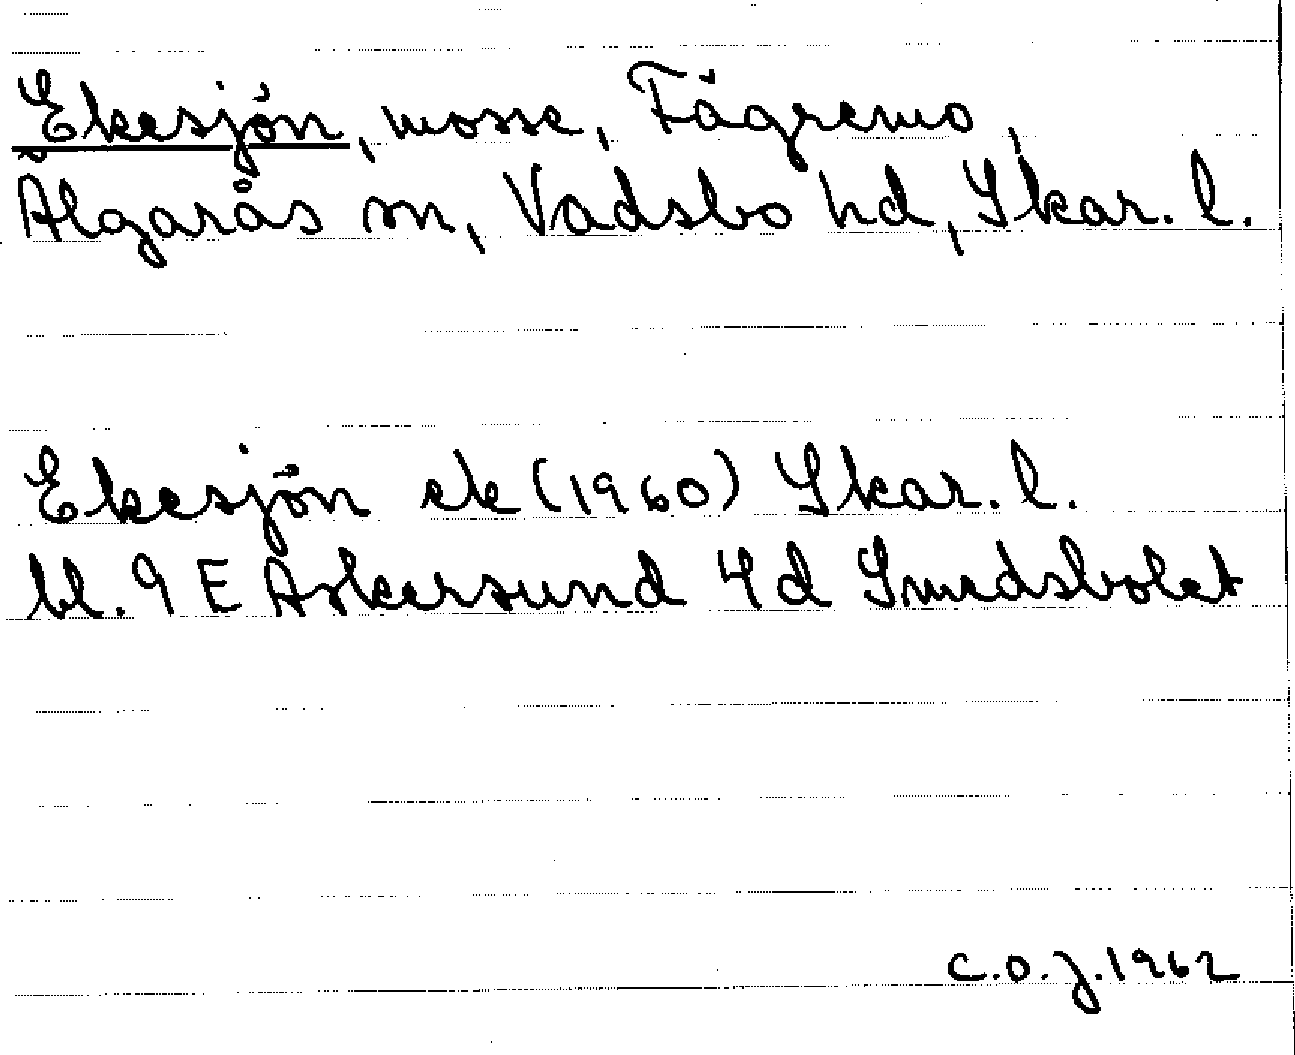 Ekesjön, mosse, Fägremo,
Älgarås sn, Vadsbo hd, Skar. l.
Ekesjön ek (1960) Skar. l.
bl. 9 E Askersund 4d Smedsbolet
C.O.J. 1962